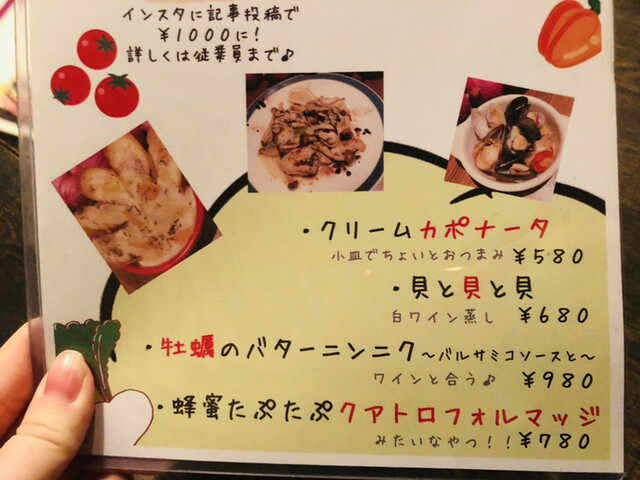 インスタに記事投稿で
¥1000に!
詳しくは従業員まで♪
・クリームカポナータ
小皿でちょいとおつまみ ¥580
・貝と貝と貝
白ワイン蒸し ¥680
・牡蠣のバターニンニク〜バルサミコソースと〜
ワインと合う♪ ¥980
・蜂蜜たぷたぷクアトロフォルマッジ
みたいなやつ!! ¥780